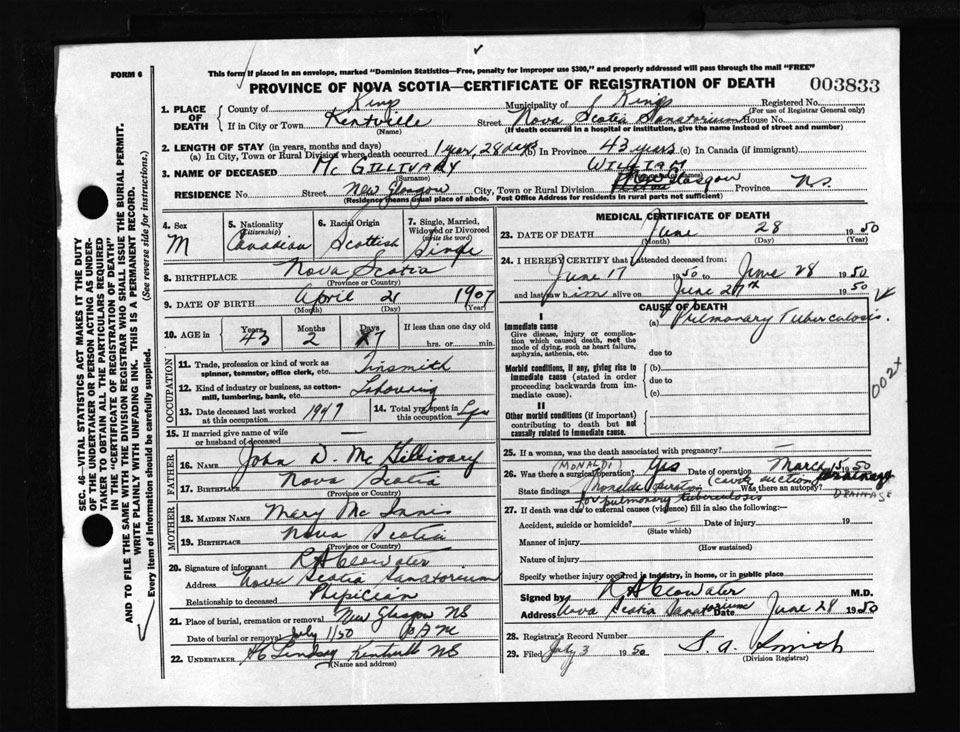 FORM 6
This form if placed in an envelope, marked "Dominion Statistics—Free, penalty for improper use $300," and properly addressed will pass through the mail "FREE"
PROVINCE OF NOVA SCOTIA—CERTIFICATE OF REGISTRATION OF DEATH
003833
1. PLACE OF DEATH
County of Kings Municipality of Kings Registered No.
(For use of Registrar General only)
If in City or Town Kentville Street Nova Scotia Sanatorium House No.
(Name) (If death occurred in a hospital or institution, give the name instead of street and number)
2. LENGTH OF STAY (in years, months and days)
(a) In City, Town or Rural Division where death occurred 1 year, 28 days (b) In Province 43 years (c) In Canada (if immigrant)
3. NAME OF DECEASED Mc GILLIVARY WILLIAM
(Surname)
RESIDENCE No. Street New Glasgow City, Town or Rural Division New Glasgow Province N.S.
(Residence means usual place of abode. Post Office Address for residents in rural parts not sufficient)
4. Sex M
5. Nationality (Citizenship) Canadian
6. Racial Origin Scottish
7. Single, Married, Widowed or Divorced (write the word) Single
8. BIRTHPLACE Nova Scotia
(Province or Country)
9. DATE OF BIRTH April 21 1907
(Month) (Day) (Year)
10. AGE in Years 43 Months 2 Days 7 If less than one day old
hrs. or min.
OCCUPATION
11. Trade, profession or kind of work as spinner, teamster, office clerk, etc. Tinsmith
12. Kind of industry or business, as cotton-mill, lumbering, bank, etc.
13. Date deceased last worked at this occupation 1947
14. Total yrs. spent in this occupation
15. If married give name of wife or husband of deceased —
FATHER
16. NAME John D. McGillivary
17. BIRTHPLACE Nova Scotia
(Province or Country)
MOTHER
18. MAIDEN NAME Mary McInnis
19. BIRTHPLACE Nova Scotia
(Province or Country)
20. Signature of informant R A Clowater
Address Nova Scotia Sanatorium
Relationship to deceased Physician
21. Place of burial, cremation or removal New Glasgow NS
Date of burial or removal July 1/50
22. UNDERTAKER Lindsay Kentville NS
(Name and address)
MEDICAL CERTIFICATE OF DEATH
23. DATE OF DEATH June 28 1950
(Month) (Day) (Year)
24. I HEREBY CERTIFY that I attended deceased from:
June 17 1950 to June 28 1950
and last saw him alive on June 27th 1950
CAUSE OF DEATH
I
Immediate cause
Give disease, injury or complication which caused death, not the mode of dying, such as heart failure, asphyxia, asthenia, etc.
(a) Pulmonary Tuberculosis.
due to
Morbid conditions, if any, giving rise to immediate cause (stated in order proceeding backwards from immediate cause).
(b)
due to
(c)
002+
II
Other morbid conditions (if important) contributing to death but not causally related to immediate cause.
25. If a woman, was the death associated with pregnancy? —
26. Was there a surgical operation? (MONALDI) Yes Date of operation March 15 1950
State findings Monaldi operation (cavity suction) drainage
DRAINAGE
for pulmonary tuberculosis Was there an autopsy?
27. If death was due to external causes (violence) fill in also the following:—
Accident, suicide or homicide? — Date of injury 19
(State which)
Manner of injury
(How sustained)
Nature of injury
Specify whether injury occurred in industry, in home, or in public place
Signed by R A Clowater M.D.
Address Nova Scotia Sanatorium Date June 28 1950
28. Registrar's Record Number
29. Filed July 3 1950 S. A. Smith
(Division Registrar)
SEC. 46—VITAL STATISTICS ACT MAKES IT THE DUTY OF THE UNDERTAKER OR PERSON ACTING AS UNDERTAKER TO OBTAIN ALL THE PARTICULARS REQUIRED IN THE "CERTIFICATE OF REGISTRATION OF DEATH" AND TO FILE THE SAME WITH THE DIVISION REGISTRAR WHO SHALL ISSUE THE BURIAL PERMIT.
WRITE PLAINLY WITH UNFADING INK. THIS IS A PERMANENT RECORD.
Every item of information should be carefully supplied. (See reverse side for instructions.)